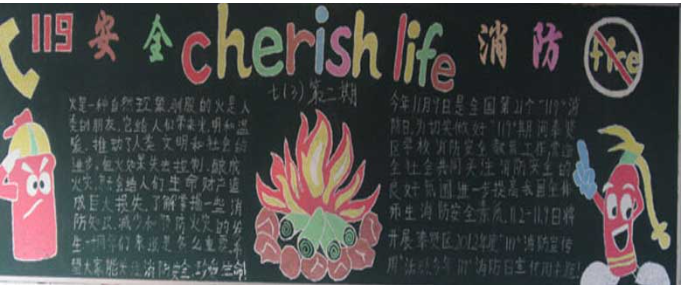 119 安全 cherish life 消防 fire
七(3)第二期
火是一种自然现象,驯服的火是人
类的朋友,它给人们带来光明和温
暖,推动了人类文明和社会的
进步,但火如果失去控制,酿成
火灾,就会给人们生命财产造
成巨大损失,了解掌握一些消
防知识,减少和预防火灾的发
生一切
望大家能关注消防安全,珍爱生命!
今年11月9日是全国第21个"119"消
防日,为切实做好"119"期间奉贤
区学校消防安全教育工作,营造
全社会共同关注消防安全的
良好氛围,进一步提高我区全体
师生消防安全意识,11.2-11.9日将
开展奉贤区2012年度"119"消防宣传
周"活动,今年"119"消防日宣传周主题: